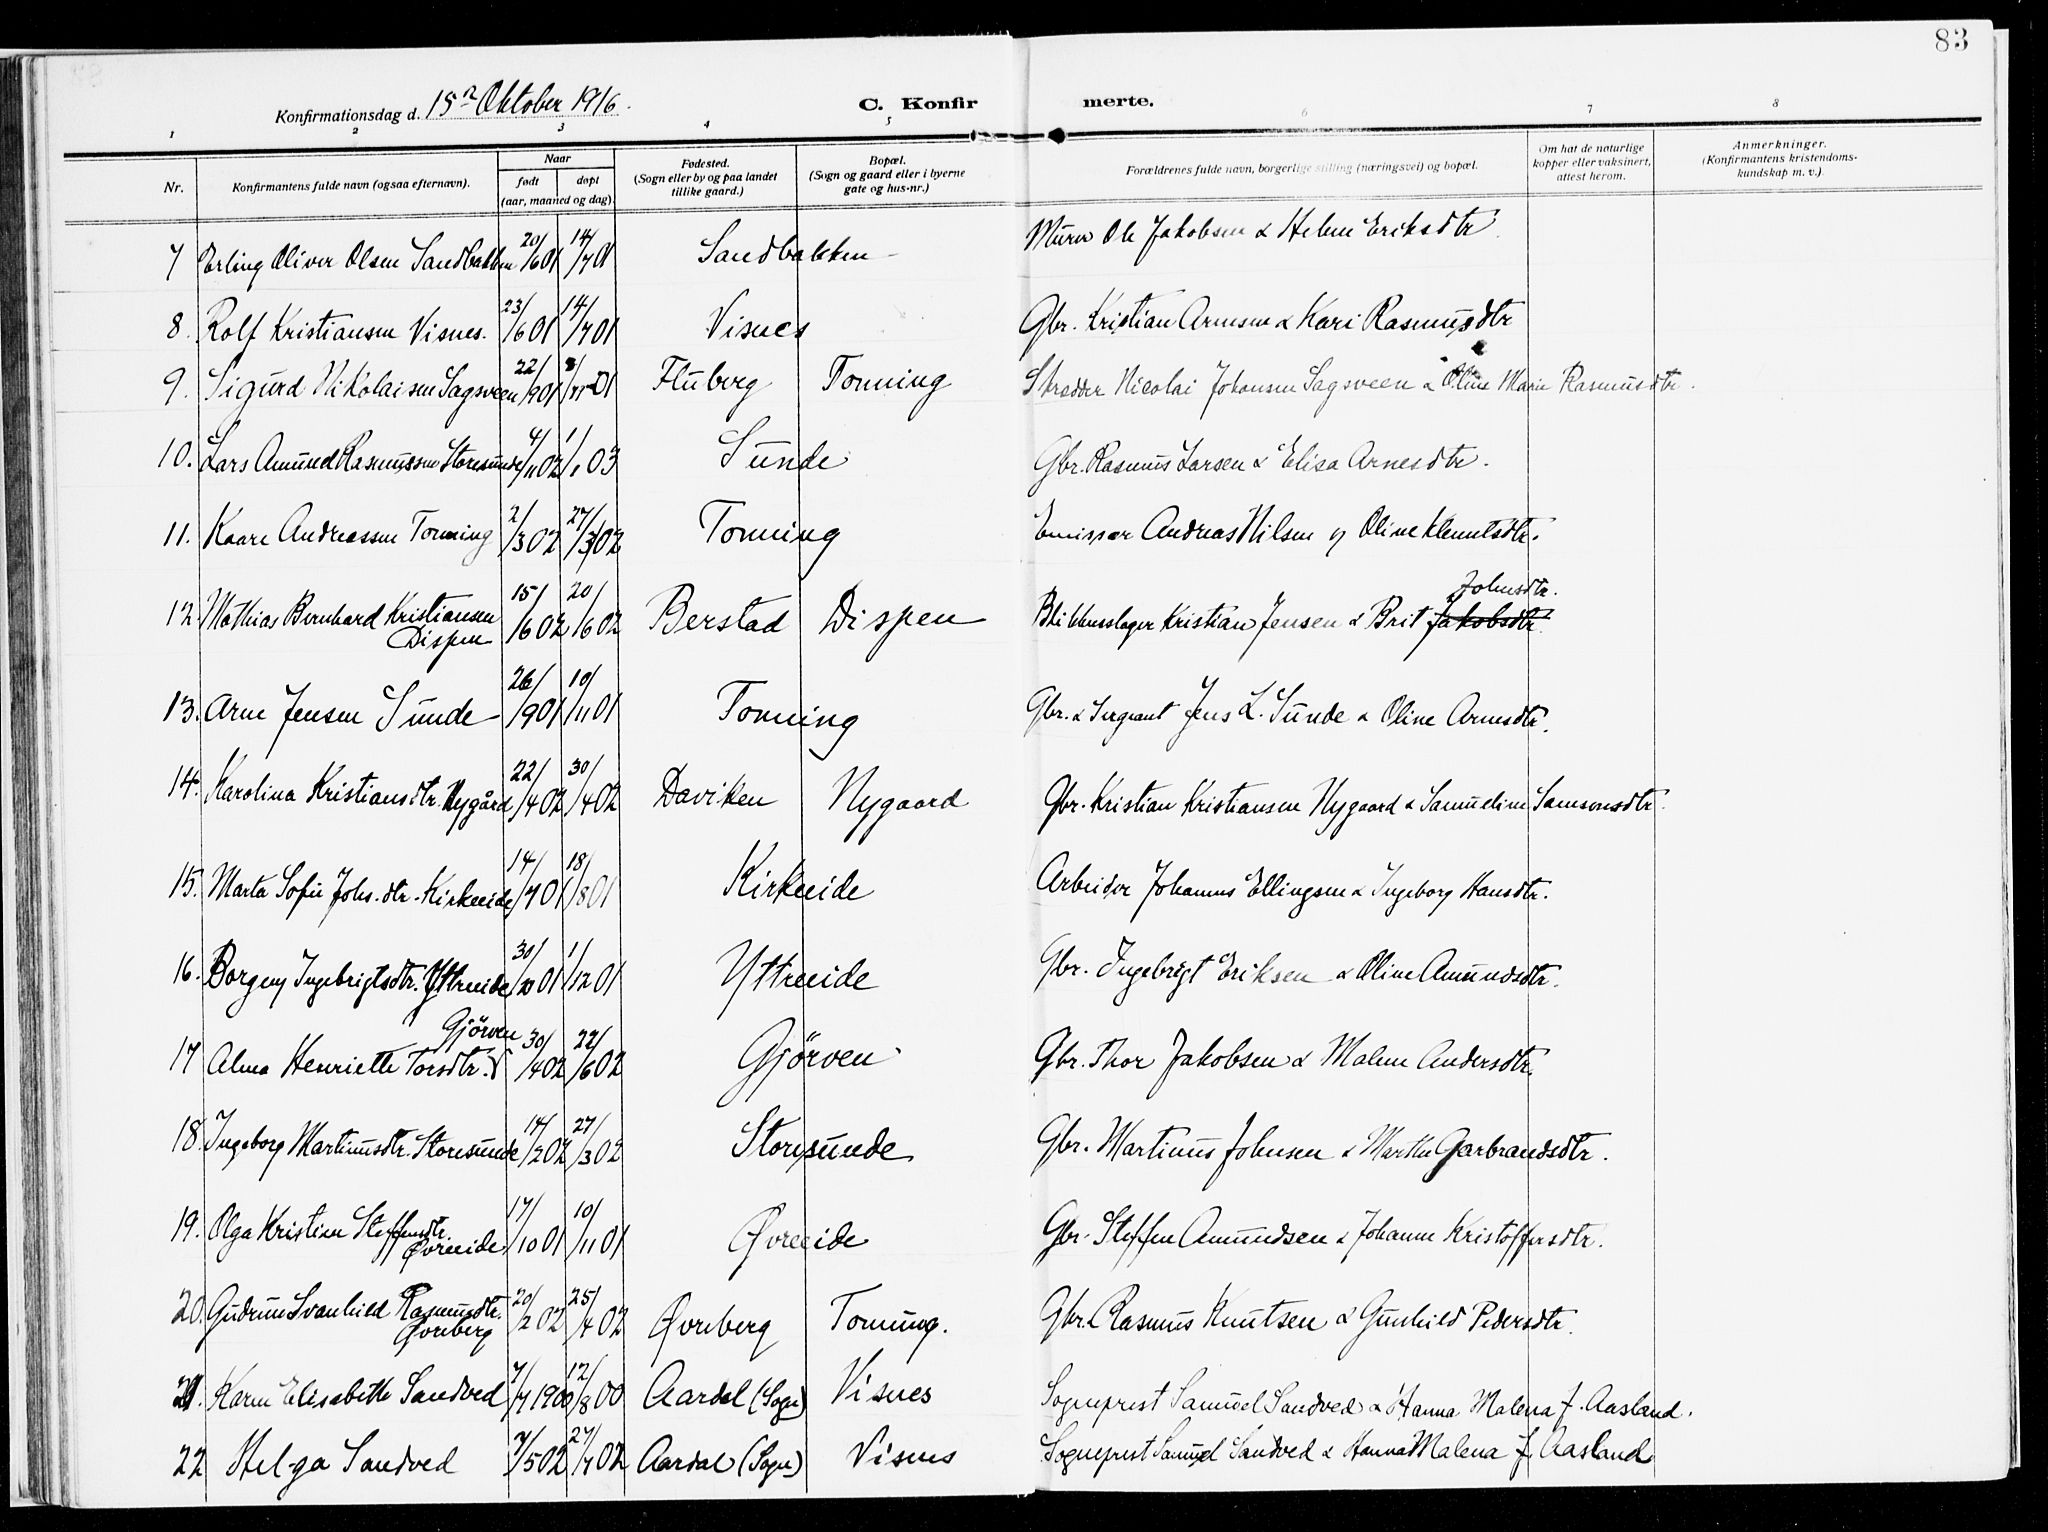 83
Konfirmationsdag d. 15de Oktober 1916.
C. Konfirmerte.
1 2 3 4 5 6 7 8
Nr. Konfirmantens fulde navn (ogsaa efternavn). Naar født døpt (aar, maaned og dag). Fødested. (Sogn eller by og paa landet tillike gaard.) Bopæl. (Sogn og gaard eller i byerne gate og hus-nr.) Forældrenes fulde navn, borgerlige stilling (næringsvei) og bopæl. Om hat de naturlige kopper eller vaksinert, attest herom. Anmerkninger. (Konfirmantens kristendomskundskap m. v.)
7 Erling Oliver Olsen Sandbakken 20/6 01 14/7 01 Sandbakken Murer Ole Jakobsen & Helene Eriksdtr.
8. Rolf Kristiansen Visnes. 23/6 01 14/7 01 Visnes Gbr. Kristian Arnesen & Kari Rasmusdtr
9. Sigurd Nikolaisen Sagsveen 22/9 01 3/11 01 Fluberg Tonning Skrædder Nicolai Johansen Sagsveen & Oline Marie Rasmusdtr.
10. Lars Amund Rasmussen Storesunde 4/11 02 1/1 03 Sunde Gbr. Rasmus Larsen & Elisa Arnesdtr.
11. Kaare Andreassen Tonning 2/3 02 27/3 02 Tonning Emissær Andreas Nilsen og Oline Klemetsdtr.
12. Mathias Bernhard Kristiansen Dispen 15/6 02 20/6 02 Berstad Dispen Blikkenslager Kristian Jensen & Brit Jakobsdtr. Johnsdtr.
13. Arne Jensen Sunde 26/9 01 10/11 01 Tonning Gbr. & Sergeant Jens L. Sunde & Oline Arnesdtr.
14. Karolina Kristiansdtr. Nygård 22/4 02 30/4 02 Daviken Nygaard Gbr. Kristian Kristiansen Nygaard & Samueline Samsonsdtr.
15. Marta Sofie Johs.dtr. Kirkeeide 14/7 01 18/8 01 Kirkeeide Arbeider Johannes Ellingsen & Ingeborg Hansdtr.
16. Borgny Ingebrigtsdtr. Yttreeide 30/10 01 1/12 01 Yttreeide Gbr. Ingebrigt Eriksen & Oline Amundsdtr.
17 Alma Henriette Torsdtr. Gjörven 30/4 02 22/6 02 Gjörven Gbr. Thor Jakobsen & Malene Andersdtr.
18. Ingeborg Martinusdtr. Storesunde 14/2 02 27/3 02 Storesunde Gbr. Martinus Johnsen & Marthe Garbrandsdtr.
19. Olga Kristine Steffensdtr. Øvreeide 17/10 01 10/11 01 Øvreeide Gbr. Steffen Amundsen & Johanne Kristoffersdtr.
20. Gudrun Svanhild Rasmusdtr. Øvreberg 20/2 02 25/4 02 Øvreberg Tonning. Gbr. Rasmus Knutsen & Gunhild Pedersdtr.
21. Karen Elisabeth Sandved 7/7 1900 12/8 00 Aardal (Sogn) Visnes Sogneprest Samuel Sandved & Hanna Malena f. Aasland.
22 Helga Sandved 7/5 02 27/7 02 Aardal (Sogn) Visnes Sogneprest Samuel Sandved & Hanna Malena f. Aasland